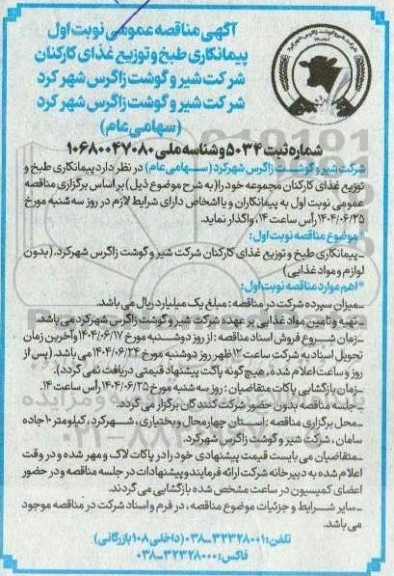 آگهی مناقصه عمومی نوبت اول
پیمانکاری طبخ و توزیع غذای کارکنان
شرکت شیر و گوشت زاگرس شهر کرد
شرکت شیر و گوشت زاگرس شهر کرد
(سهامی عام)
شماره ثبت ۵۰۳۴ و شناسه ملی ۱۰۶۸۰۰۴۷۰۸۰
شرکت شیر و گوشت زاگرس شهرکرد (سهامی عام) در نظر دارد پیمانکاری طبخ و
توزیع غذای کارکنان مجموعه خود را (به شرح موضوع ذیل) بر اساس برگزاری مناقصه
عمومی نوبت اول به پیمانکاران و یا اشخاص دارای شرایط لازم در روز سه شنبه مورخ
۱۴۰۴/۰۶/۲۵ رأس ساعت ۱۴، واگذار نماید.
*موضوع مناقصه نوبت اول:
ـ پیمانکاری طبخ و توزیع غذای کارکنان شرکت شیر و گوشت زاگرس شهرکرد. (بدون
لوازم و مواد غذایی)
*اهم موارد مناقصه نوبت اول:
ـ میزان سپرده شرکت در مناقصه: مبلغ یک میلیارد ریال می باشد.
ـ تهیه و تامین مواد غذایی بر عهده شرکت شیر و گوشت زاگرس شهرکرد می باشد.
ـ زمان شروع فروش اسناد مناقصه: از روز دوشنبه مورخ ۱۴۰۴/۰۶/۱۷ و آخرین زمان
تحویل اسناد به شرکت ساعت ۱۲ ظهر روز دوشنبه مورخ ۱۴۰۴/۰۶/۲۴ می باشد. (پس از
روز و ساعت اعلام شده، هیچ گونه پاکت پیشنهاد قیمتی دریافت نمی گردد).
ـ زمان بازگشایی پاکات متقاضیان: روز سه شنبه مورخ ۱۴۰۴/۰۶/۲۵ رأس ساعت ۱۴.
ـ جلسه مناقصه بدون حضور شرکت کنندگان برگزار می گردد.
ـ محل برگزاری مناقصه: استان چهارمحال و بختیاری، شهرکرد، کیلومتر ۱۰ جاده
سامان، شرکت شیر و گوشت زاگرس شهرکرد.
ـ متقاضیان می بایست قیمت پیشنهادی خود را در پاکات لاک و مهر شده و در وقت
اعلام شده به دبیرخانه شرکت ارائه فرمایند و پیشنهادات در جلسه مناقصه و در حضور
اعضای کمیسیون در ساعت مشخص شده بازگشایی می گردند.
ـ سایر شرایط و جزئیات موضوع مناقصه، در فرم و اسناد شرکت در مناقصه موجود
می باشد.
تلفن: ۳۲۳۲۸۰۰۱-۰۳۸ (داخلی ۱۰۸ بازرگانی)
فاکس: ۳۲۳۲۸۰۰۰-۰۳۸